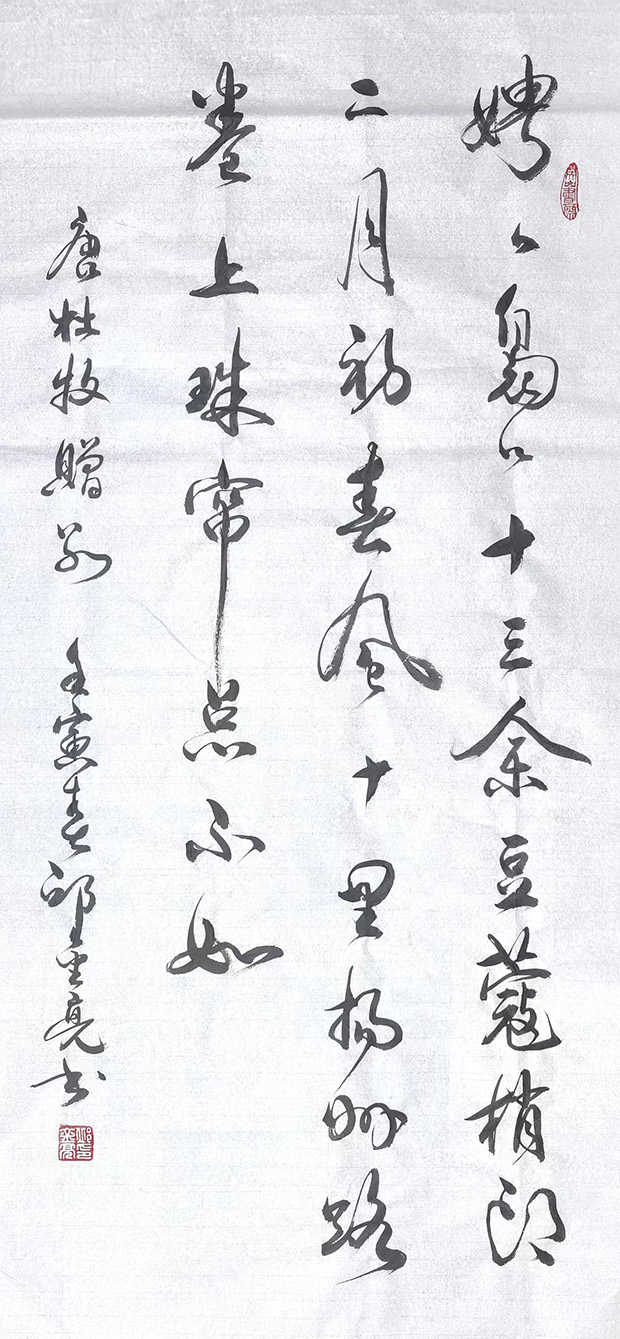 娉々袅々十三余豆蔻梢头
二月初春风十里扬州路
卷上珠帘总不如
唐杜牧赠别 壬寅春邱金亮书